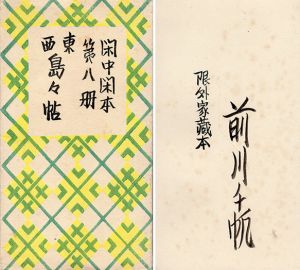 閑中閑本
第八冊
東西島々帖
前川千帆
限外家蔵本